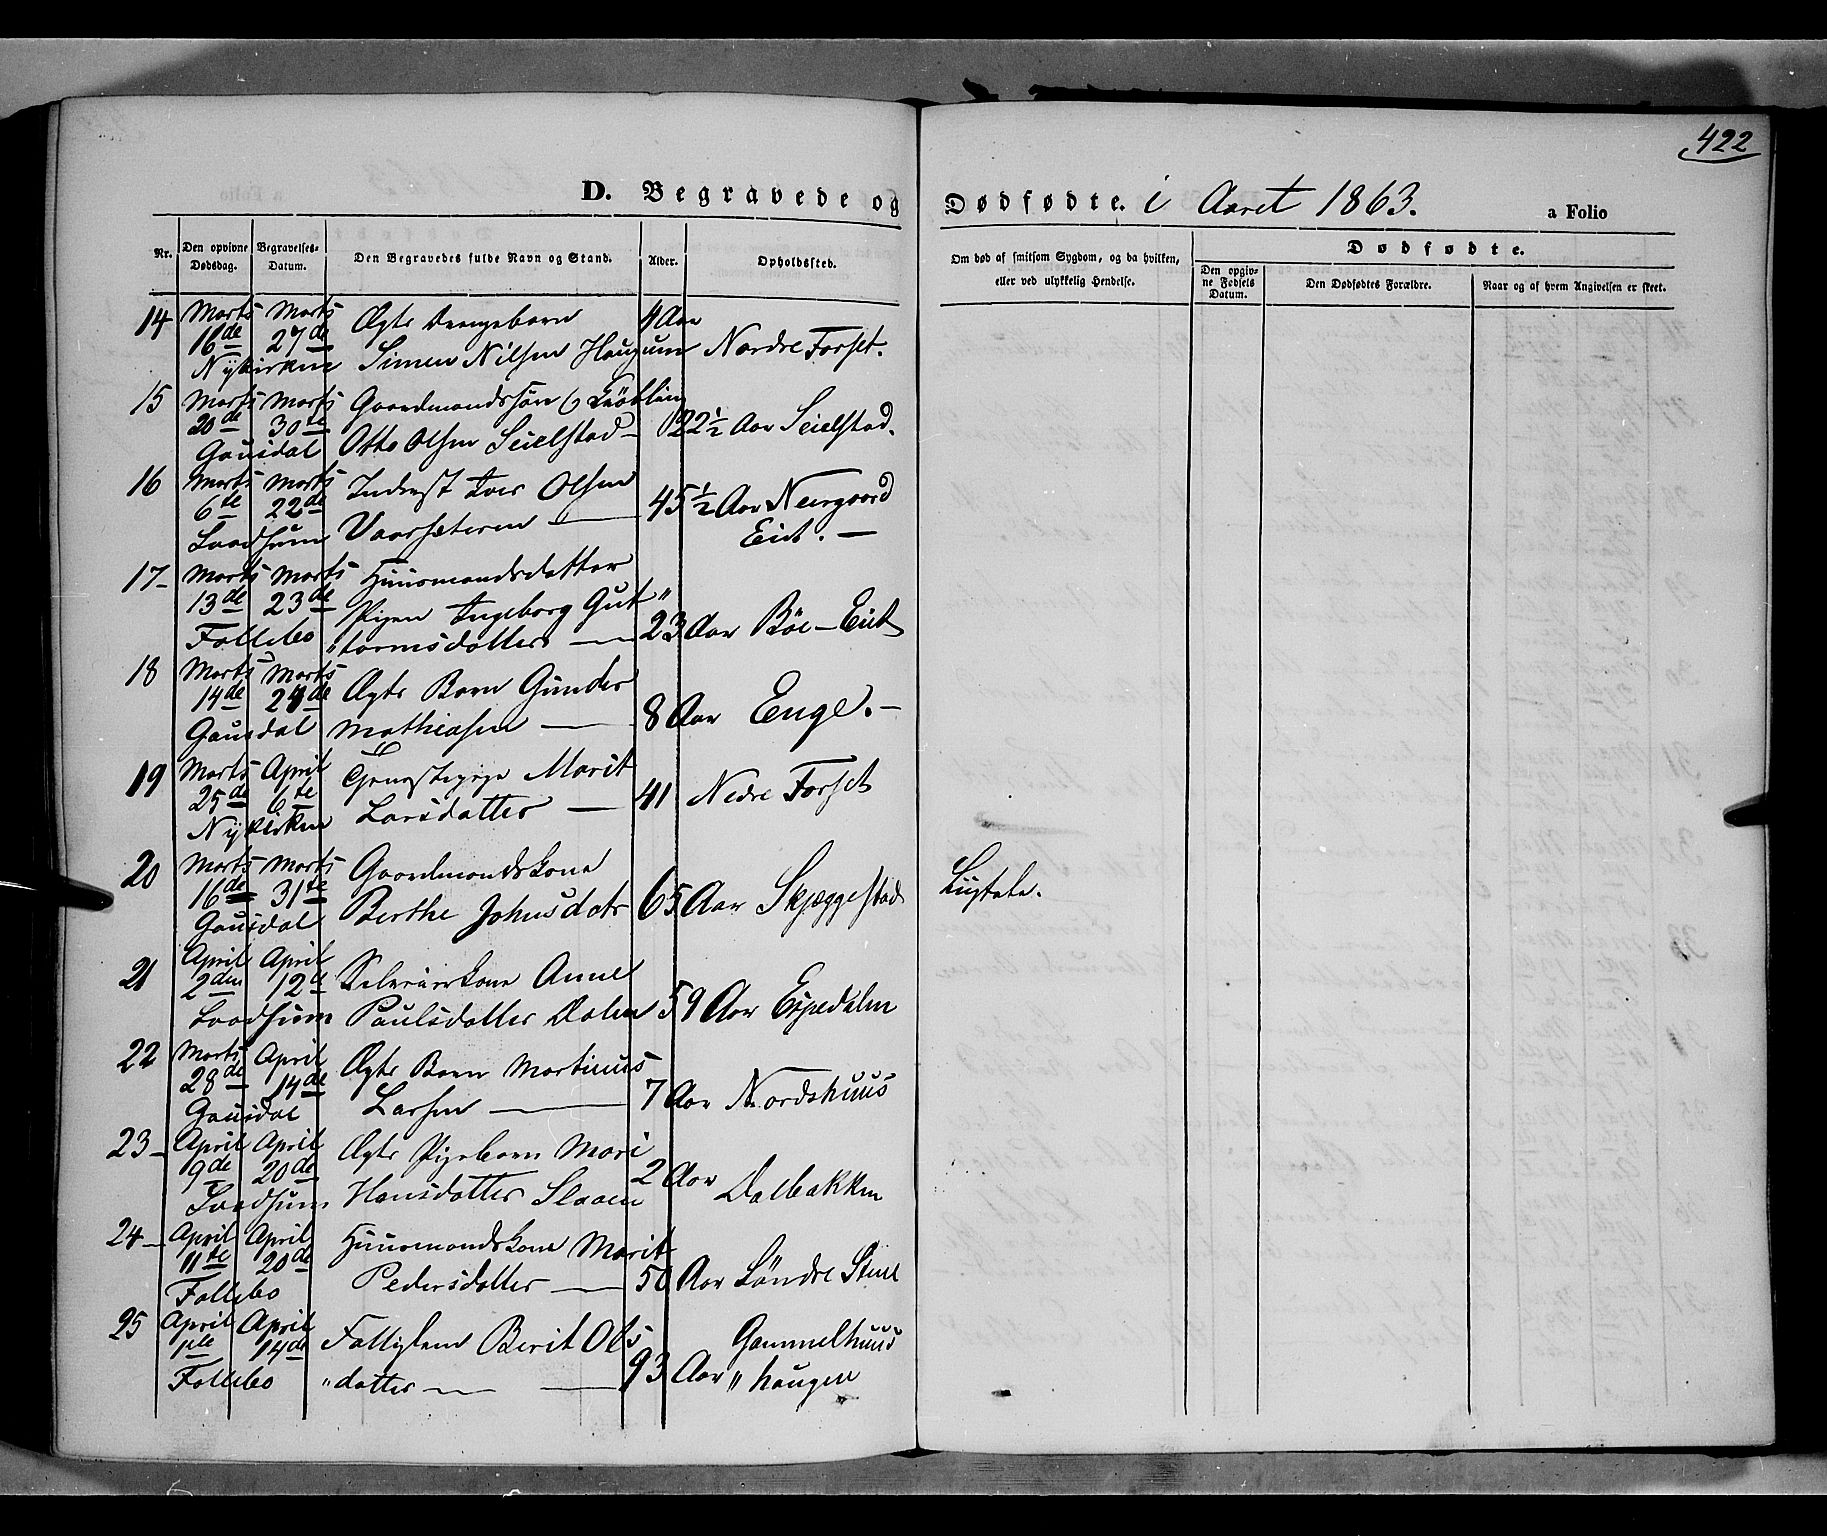 422
D. Begravede og Dødfødte. i Aaret 1863. a Folio
Nr.
Den opgivne Dødsdag.
Begravelses-Datum.
Den Begravedes fulde Navn og Stand.
Alder.
Opholdssted.
Om død af smitsom Sygdom, og da hvilken,
eller ved ulykkelig Hendelse.
Dødfødte.
Den opgiv-
ne Fødsels
Datum.
Den Dødfødtes Forældre.
Naar og af hvem Angivelsen er skeet.
14 Marts Marts Ægte Drengebarn 4 Aar
16de 27de Simen Nilsen Haugum Nordre Forset.
Nykirken
15 Marts Marts Gaardmandssøn
20de 30te Otto Olsen Seielstad 22½ Aar Seielstad.
Gausdal
16 Marts Marts Inderst Iver Olsen
6te 22de Vaarseteren 45½ Aar Neurgaard
Laadsum Eiet.
17 Marts Marts Huusmandsdatter
13de 23de Pigen Ingeborg Gut"
Follebo "tormsdatter 23 Aar Böe-Eiet
18 Marts Marts Ægte Barn Gunder
14de 24de Mathiasen 8 Aar Enge.
Gausdal
19 Marts April Tjenestepige Marit
25de 6te Larsdatter 41 Nedre Forset
Nykirken
20 Marts Marts Gaardmandskone
16de 31te Berthe Johnsdatr 65 Aar Skjæggestad
Gausdal
21 April April Anne
2den 12te Paulsdatter Dalen 59 Aar Espedalen
Laadsum
22 Marts April Ægte Barn Martinus
28de 14de Larsen 7 Aar Nordshuus
Gausdal
23 April April Ægte Pigebarn Mari
9de 20de Hansdatter Slaaen 2 Aar Dalbakken
Laadsum
24 April April Huusmandskone Marit
11te 20de Pedersdatter 50 Aar Söndre Steue
Follebo
25 April April Fattiglem Berit Ols
1ste 14de "datter 93 Aar Gammelhuus
Follebo "haugen